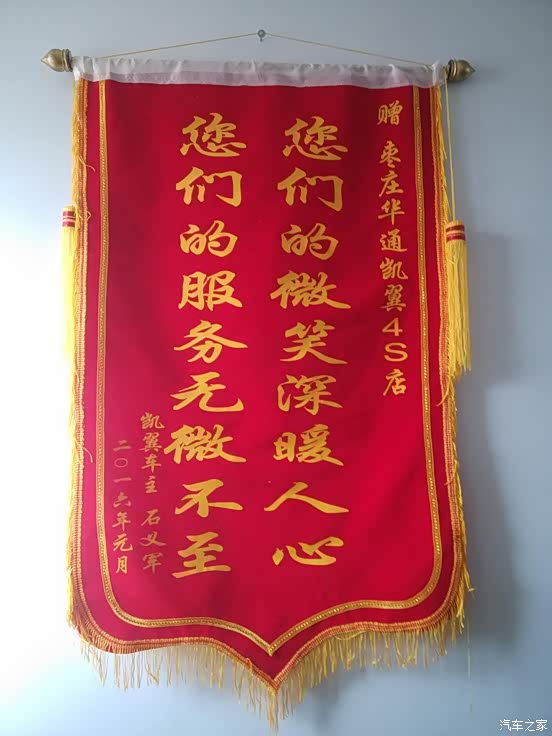 赠 枣庄华通凯翼4S店
您们的微笑深暖人心
您们的服务无微不至
凯翼车主 石义军
二〇一六年元月
汽车之家